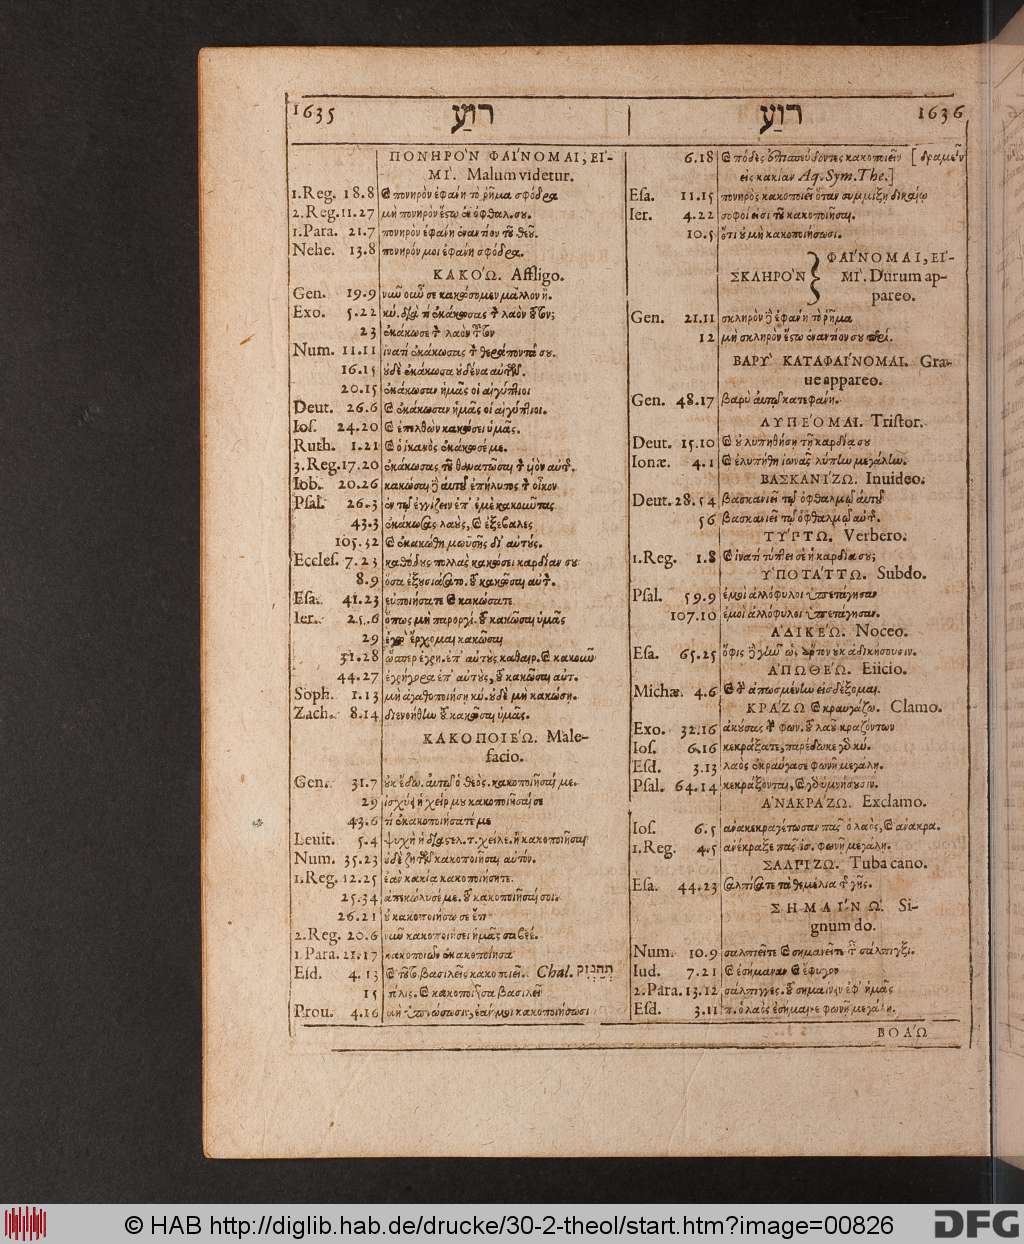 1635 רוּעַ רוּעַ 1636
ΠΟΝΗΡΟ'Ν ΦΑΙ'ΝΟΜΑΙ, ΕΙ'-
ΜΙ'. Malum videtur.
1.Reg. 18.8 & πονηρὸν ἐφάνη τὸ ῥῆμα σφόδρα
2.Reg. 11.27 μὴ πονηρὸν ἔστω ἐν ὀφθαλ. σου.
1.Para. 21.7 πονηρὸν ἐφάνη ἐναντίον τοῦ θεοῦ.
Nehe. 13.8 πονηρόν μοι ἐφάνη σφόδρα.
ΚΑΚΟ'Ω. Affligo.
Gen. 19.9 νῦν οὖν σε κακώσομεν μᾶλλον ἢ.
Exo. 5.22 κύ. διὰ τί ἐκάκωσας τὸν λαὸν τοῦτον;
23 ἐκάκωσε τὸν λαὸν τοῦτον
Num. 11.11 ἱνατί ἐκάκωσας τὸν θεράποντά σου.
16.15 οὐδὲ ἐκάκωσα οὐδένα αὐτῶν.
20.15 ἐκάκωσαν ἡμᾶς οἱ αἰγύπτιοι
Deut. 26.6 & ἐκάκωσαν ἡμᾶς οἱ αἰγύπτιοι.
Ios. 24.20 & ἐπελθὼν κακώσει ὑμᾶς.
Ruth. 1.21 & ὁ ἱκανὸς ἐκάκωσέ με.
3.Reg. 17.20 ἐκάκωσας τοῦ θανατῶσαι τὸν υἱὸν αὐτῆς.
Iob. 20.26 κακώσαι δὲ αὐτοῦ ἐπήλυτος τὸν οἶκον
Psal. 26.3 ἐν τῷ ἐγγίζειν ἐπ' ἐμὲ κακοῦντας
43.3 ἐκάκωσας λαοὺς, & ἐξέβαλες
105.32 & ἐκακώθη μωϋσῆς δι' αὐτούς.
Eccles. 7.23 καθόδους πολλὰς κακώσει καρδίαν σου
8.9 ὅσα ἐξουσιάσατο. τοῦ κακῶσαι αὐτόν.
Esa. 41.23 εὐποιήσατε & κακώσατε
Ier. 25.6 ὅπως μὴ παροργί. τοῦ κακῶσαι ὑμᾶς
29 ἐγὼ ἔρχομαι κακῶσαι
31.28 ὥσπερ ἐγρη. ἐπ' αὐτοὺς καθαιρ. & κακοῦν
44.27 ἐγρήγορα ἐπ' αὐτοὺς, τοῦ κακῶσαι αὐτ.
Soph. 1.13 μὴ ἀγαθοποιήσῃ κύ. οὐδὲ μὴ κακώσῃ.
Zach. 8.14 διενοήθην τοῦ κακῶσαι ὑμᾶς.
ΚΑΚΟΠΟΙΕ'Ω. Male-
facio.
Gen. 31.7 οὐκ ἔδω. αὐτῷ ὁ θεὸς. κακοποιῆσαί με.
29 ἰσχύει ἡ χείρ μου κακοποιῆσαί σε
43.6 τί ἐκακοποιήσατέ με
Leuit. 5.4 ψυχὴ ἡ διαστελ. τ. χείλε. ἢ κακοποιῆσαι
Num. 35.23 οὐδὲ ζητῶν κακοποιῆσαι αὐτόν.
1.Reg. 12.25 ἐὰν κακίᾳ κακοποιήσητε.
25.34 ἀπεκώλυσέ με. τοῦ κακοποιῆσαί σοι.
26.21 οὐ κακοποιήσω σε ἔτι
2.Reg. 20.6 νῦν κακοποιήσει ἡμᾶς σαβεέ.
1.Para. 21.17 κακοποιῶν ἐκακοποίησα
Esd. 4.13 & τοῦτο βασιλεῖς κακοποιεῖ. Chal. תְּהַנְזִק
15 πόλις. & κακοποιοῦσα βασιλεῖς
Prou. 4.16 οὐ μὴ ὑπνώσωσιν, ἐὰν μὴ κακοποιήσωσι
6.18 & πόδες ἐπισπεύδοντες κακοποιεῖν [δραμεῖν
εἰς κακίαν Aq. Sym. The.]
Esa. 11.15 πονηρὸς κακοποιεῖ ὅταν συμμίξῃ δικαίῳ
Ier. 4.22 σοφοί εἰσι τοῦ κακοποιῆσαι.
10.5 ὅτι οὐ μὴ κακοποιήσωσι.
ΣΚΛΗΡΟ'Ν } ΦΑΙ'ΝΟΜΑΙ, ΕΙ'-
ΜΙ'. Durum ap-
pareo.
Gen. 21.11 σκληρὸν δὲ ἐφάνη τὸ ῥῆμα
12 μὴ σκληρὸν ἔστω ἐναντίον σου περί.
ΒΑΡΥ' ΚΑΤΑΦΑΙ'ΝΟΜΑΙ. Gra-
ue appareo.
Gen. 48.17 βαρὺ αὐτῷ κατεφάνη.
ΛΥΠΕ'ΟΜΑΙ. Tristor.
Deut. 15.10 & οὐ λυπηθήσῃ τῇ καρδίᾳ σου
Ionæ. 4.1 & ἐλυπήθη ἰωνᾶς λύπην μεγάλην.
ΒΑΣΚΑΝΙ'ΖΩ. Inuideo.
Deut. 28.54 βασκανιεῖ τῷ ὀφθαλμῷ αὐτοῦ
56 βασκανιεῖ τῷ ὀφθαλμῷ αὐτῆς.
ΤΥ'ΠΤΩ. Verbero.
1.Reg. 1.8 & ἱνατί τύπτει σε ἡ καρδία σου;
Υ'ΠΟΤΑ'ΤΤΩ. Subdo.
Psal. 59.9 ἐμοὶ ἀλλόφυλοι ὑπετάγησαν
107.10 ἐμοὶ ἀλλόφυλοι ὑπετάγησαν.
Α'ΔΙΚΕ'Ω. Noceo.
Esa. 65.25 ὄφις δὲ γῆν ὡς ἄρτον οὐκ ἀδικήσουσιν.
Α'ΠΩΘΕ'Ω. Eiicio.
Michæ. 4.6 & τὴν ἀπωσμένην εἰσδέξομαι.
ΚΡΑ'ΖΩ & κραυγάζω. Clamo.
Exo. 32.16 ἀκούσας τὴν φων. τοῦ λαοῦ κραζόντων
Ios. 6.16 κεκράξατε, παρέδωκε γὰρ κύ.
Esd. 3.13 λαὸς ἐκραύγασε φωνῇ μεγάλῃ.
Psal. 64.14 κεκράξονται, & γὰρ ὑμνήσουσιν.
Α'ΝΑΚΡΑ'ΖΩ. Exclamo.
Ios. 6.5 ἀνακεκραγέτωσαν πᾶς ὁ λαὸς, & ἀνακρα.
1.Reg. 4.5 ἀνέκραξε πᾶς ἰσ. φωνῇ μεγάλῃ.
ΣΑΛΠΙ'ΖΩ. Tuba cano.
Esa. 44.23 σαλπίσατε τὰ θεμέλια τῆς γῆς.
ΣΗΜΑΙ'ΝΩ. Si-
gnum do.
Num. 10.9 σαλπιεῖτε & σημανεῖτε ταῖς σάλπιγξι.
Iud. 7.21 & ἐσήμαναν & ἔφυγον
2.Para. 13.12 σάλπιγγες. τοῦ σημαίνειν ἐφ' ἡμᾶς
Esd. 3.11 π. ὁ λαὸς ἐσήμαινε φωνῇ μεγάλῃ.
ΒΟΑ'Ω
© HAB http://diglib.hab.de/drucke/30-2-theol/start.htm?image=00826
DFG